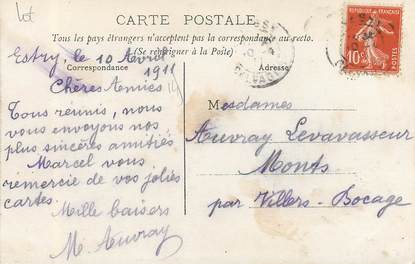 Lot
CARTE POSTALE
Tous les pays étrangers n'acceptent pas la correspondance au recto.
(Se renseigner à la Poste)
Correspondance
Adresse
Estry, le 10 Avril
1911
Chères Amies
Tous réunis, nous
vous envoyons nos
plus sincères amitiés
Marcel vous
remercie de vos jolies
cartes.
Mille baisers
M. Auvray
Mesdames
Auvray Levavasseur
Monts
par Villers-Bocage
10c